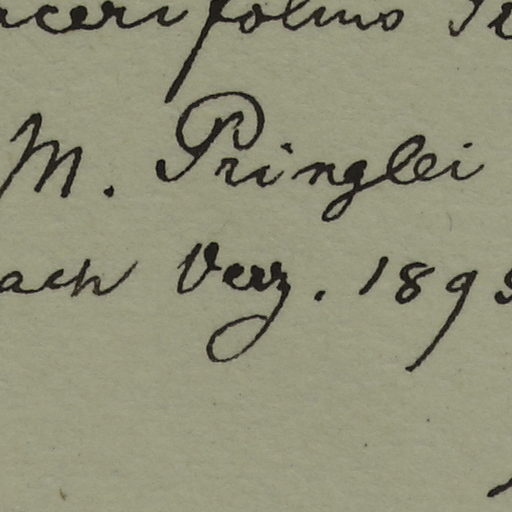 acerifolius
M. Pringlei
ach Verz. 189